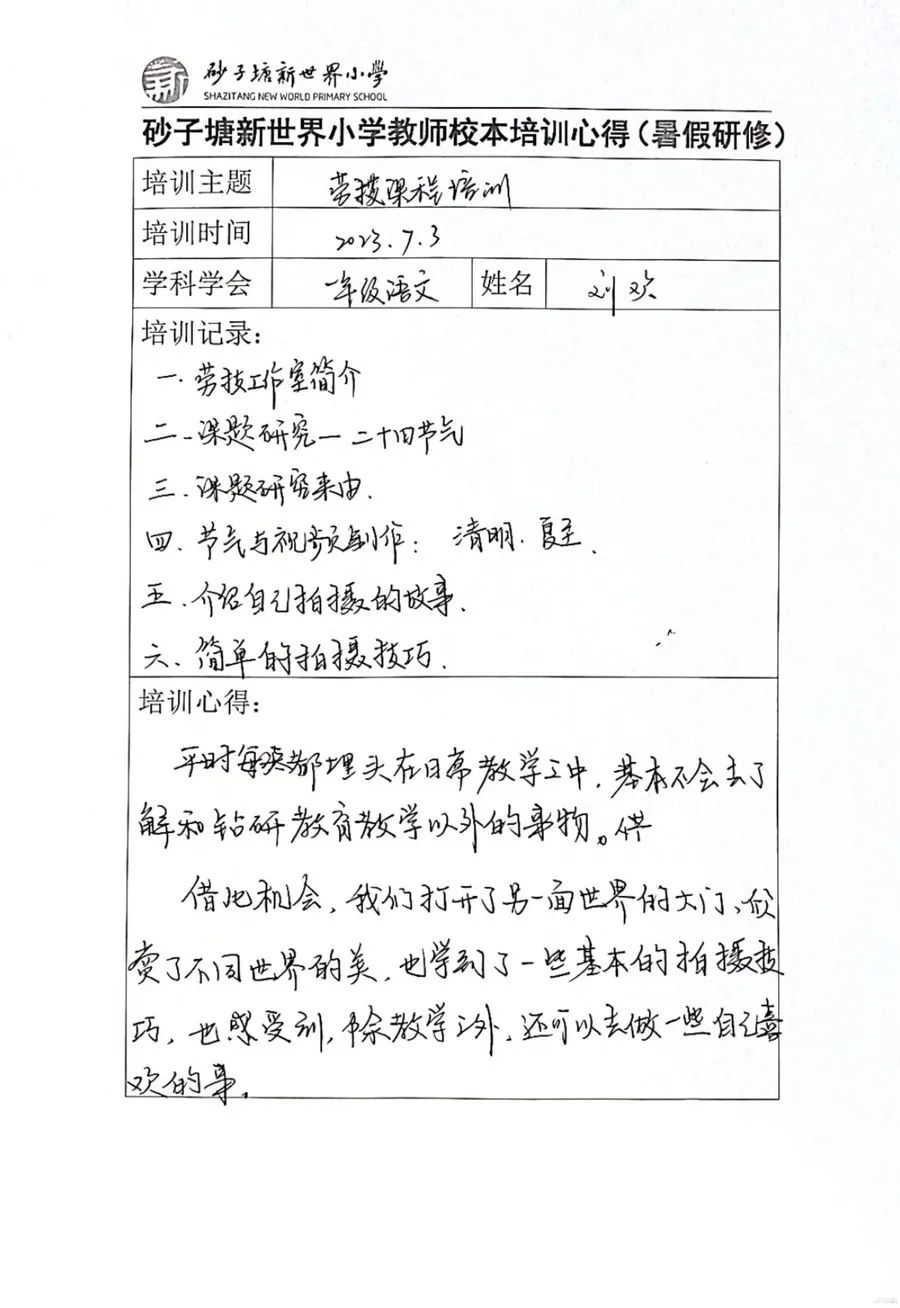 砂子塘新世界小學
SHAZITANG NEW WORLD PRIMARY SCHOOL
砂子塘新世界小学教师校本培训心得（暑假研修）
培训主题 劳技课程培训
培训时间 2023.7.3
学科学会 一年级语文 姓名 刘欢
培训记录：
一.劳技工作室简介
二.课题研究—二十四节气
三.课题研究来由.
四.节气与视频制作：清明.夏至.
五.介绍自己拍摄的故事.
六、简单的拍摄技巧.
培训心得：
平时每天都埋头在日常教学工中，基本不会去了
解和钻研教育教学以外的事物。借
借此机会，我们打开了另一面世界的大门、欣
赏了不同世界的美，也学到了一些基本的拍摄技
巧，也感受到，除教学之外，还可以去做一些自己喜
欢的事.